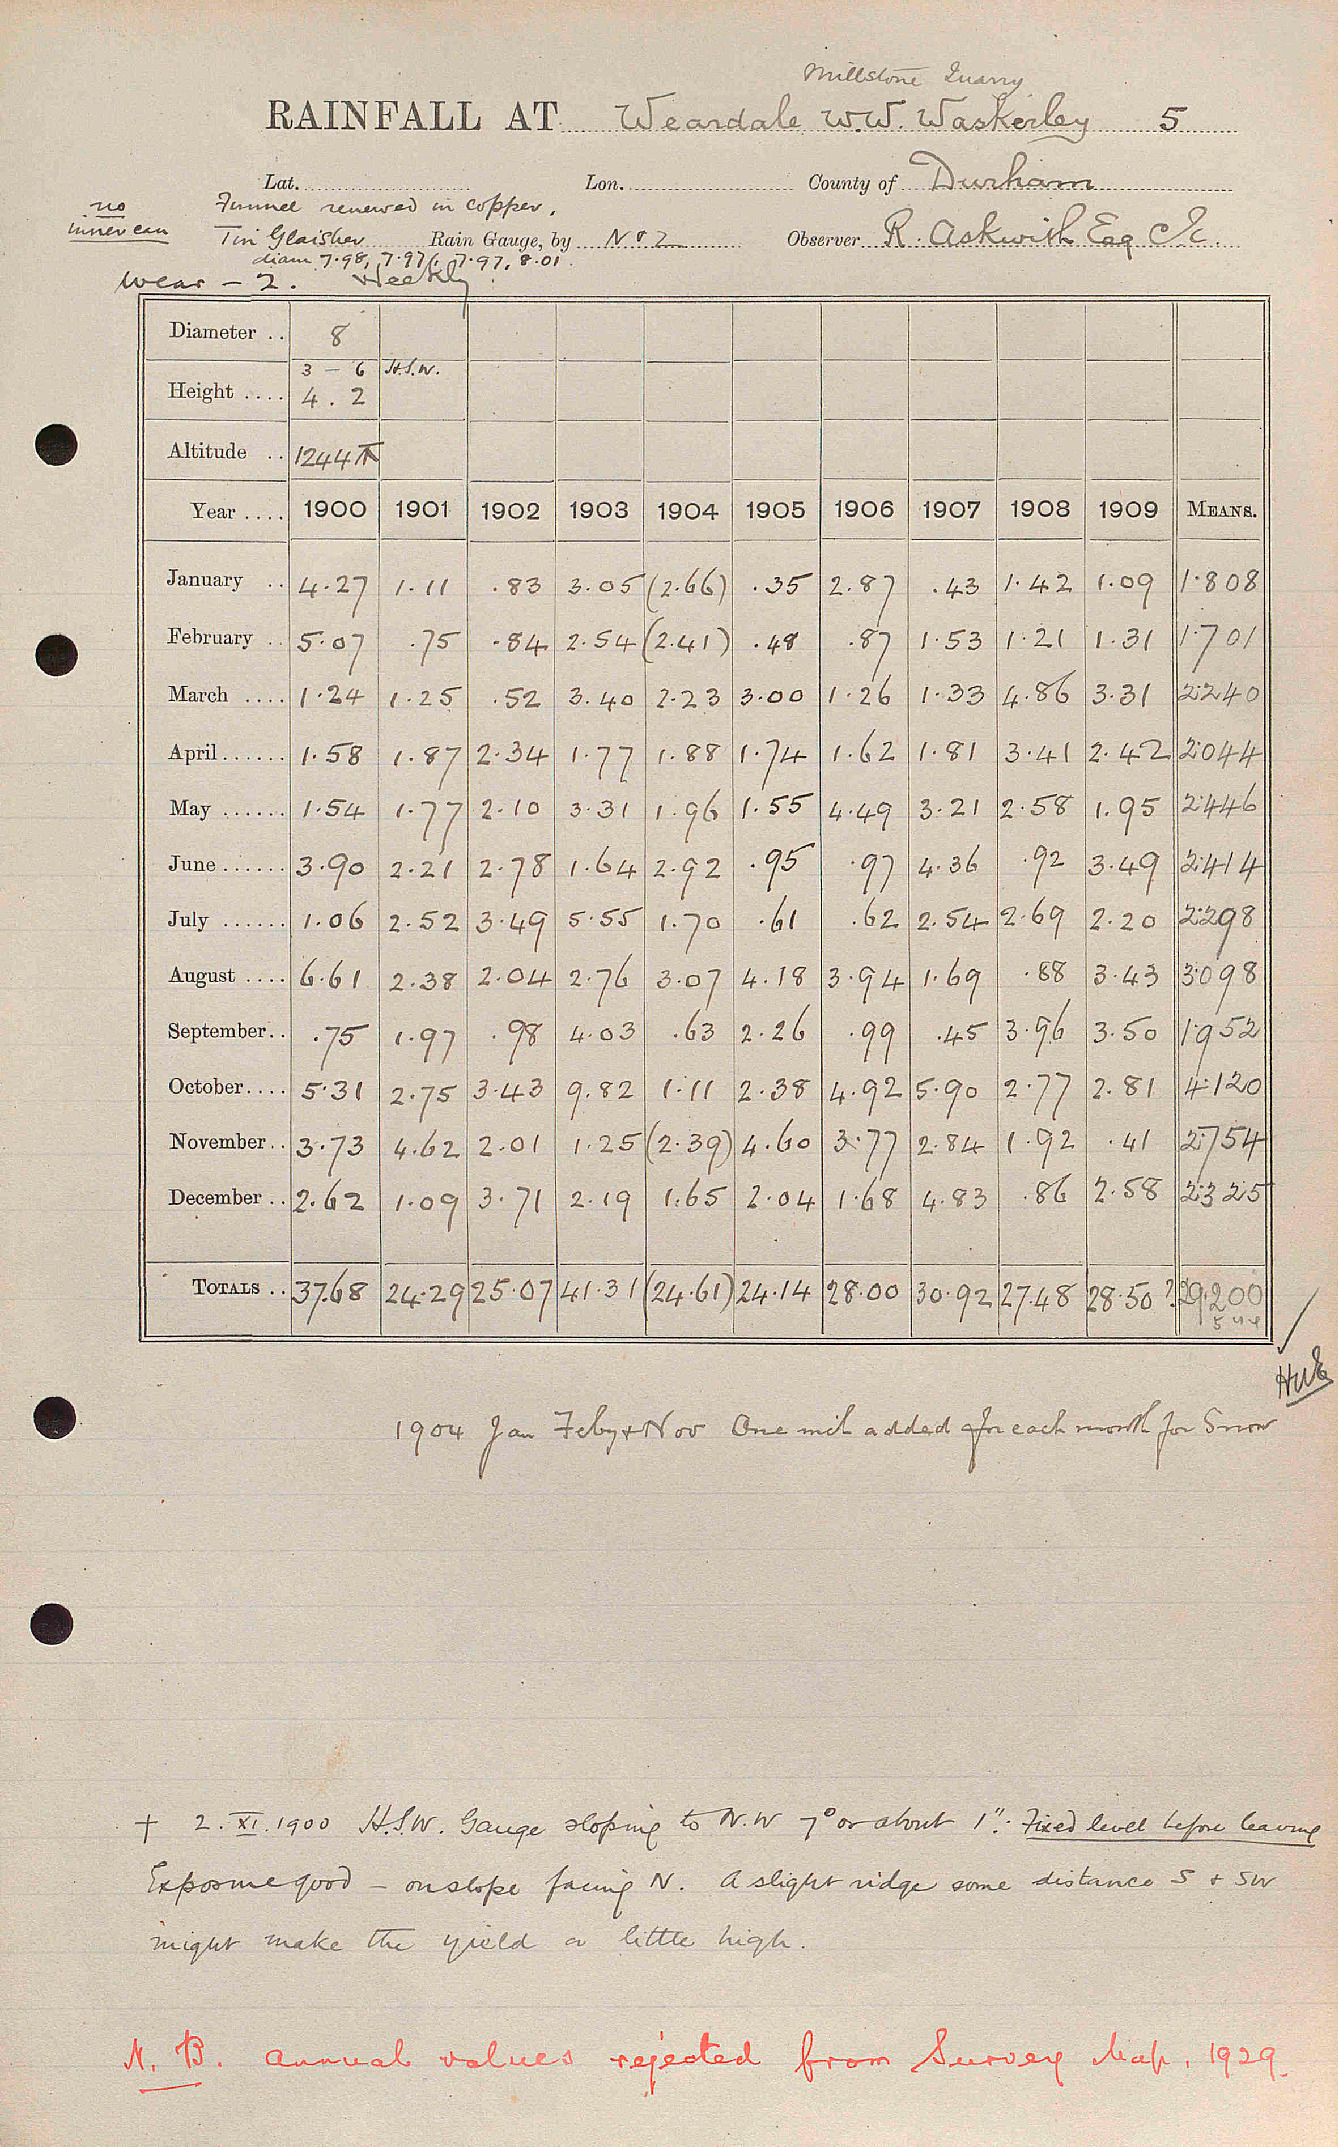 Millstone Quarry
RAINFALL AT Weardale W.W. Waskerley 5
Lat. Lon. County of Durham
no Funnel renewed in copper.
inner can Tin Glaisher Rain Gauge, by No 2 Observer R. Askwith Esq C.E.
diam 7.98, 7.97, 7.97, 8.01.
Wear - 2. Weekly.
Diameter .. 8
3 - 6 H.S.W.
Height .... 4 . 2
Altitude .. 1244
Year .... 1900 1901 1902 1903 1904 1905 1906 1907 1908 1909 MEANS.
January .. 4.27 1.11 .83 3.05 (2.66) .35 2.87 .43 1.42 1.09 1.808
February .. 5.07 .75 .84 2.54 (2.41) .48 .87 1.53 1.21 1.31 1.701
March .... 1.24 1.25 .52 3.40 2.23 3.00 1.26 1.33 4.86 3.31 2.240
April ...... 1.58 1.87 2.34 1.77 1.88 1.74 1.62 1.81 3.41 2.42 2.044
May ...... 1.54 1.77 2.10 3.31 1.96 1.55 4.49 3.21 2.58 1.95 2.446
June ...... 3.90 2.21 2.78 1.64 2.92 .95 .97 4.36 .92 3.49 2.414
July ...... 1.06 2.52 3.49 5.55 1.70 .61 .62 2.54 2.69 2.20 2.298
August .... 6.61 2.38 2.04 2.76 3.07 4.18 3.94 1.69 .88 3.43 3.098
September .. .75 1.97 .98 4.03 .63 2.26 .99 .45 3.96 3.50 1.952
October .... 5.31 2.75 3.43 9.82 1.11 2.38 4.92 5.90 2.77 2.81 4.120
November .. 3.73 4.62 2.01 1.25 (2.39) 4.60 3.77 2.84 1.92 .41 2.754
December .. 2.62 1.09 3.71 2.19 1.65 2.04 1.68 4.83 .86 2.58 2.325
TOTALS .. 37.68 24.29 25.07 41.31 (24.61) 24.14 28.00 30.92 27.48 28.50 ? 29.200
1904 Jan Feby & Nov One inch added for each month for Snow
† 2.XI.1900 H.S.W. Gauge sloping to N.W 7° or about 1". Fixed level before leaving
Exposure good - on slope facing N. A slight ridge some distance S & SW
might make the yield a little high.
N.B. Annual values rejected from Survey Map, 1929.